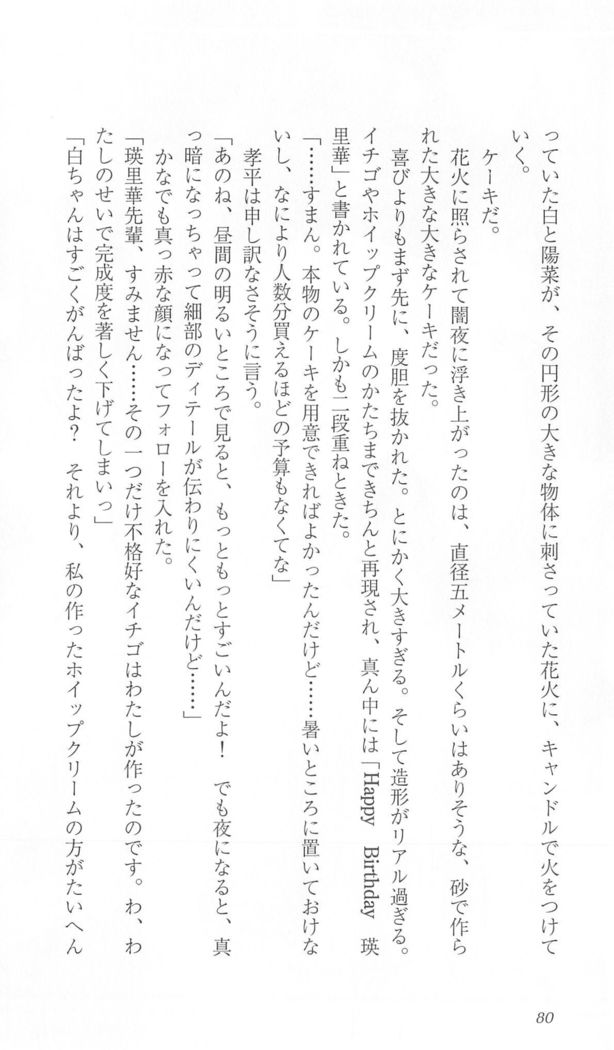 っていた白と陽菜が、その円形の大きな物体に刺さっていた花火に、キャンドルで火をつけて
いく。
ケーキだ。
花火に照らされて闇夜に浮き上がったのは、直径五メートルくらいはありそうな、砂で作ら
れた大きな大きなケーキだった。
喜びよりもまず先に、度胆を抜かれた。とにかく大きすぎる。そして造形がリアル過ぎる。
イチゴやホイップクリームのかたちまできちんと再現され、真ん中には「Happy Birthday 瑛
里華」と書かれている。しかも二段重ねときた。
「……すまん。本物のケーキを用意できればよかったんだけど……暑いところに置いておけな
いし、なにより人数分買えるほどの予算もなくてな」
孝平は申し訳なさそうに言う。
「あのね、昼間の明るいところで見ると、もっともっとすごいんだよ！　でも夜になると、真
っ暗になっちゃって細部のディテールが伝わりにくいんだけど……」
かなでも真っ赤な顔になってフォローを入れた。
「瑛里華先輩、すみません……その一つだけ不格好なイチゴはわたしが作ったのです。わ、わ
たしのせいで完成度を著しく下げてしまいっ」
「白ちゃんはすごくがんばったよ？　それより、私の作ったホイップクリームの方がたいへん
80